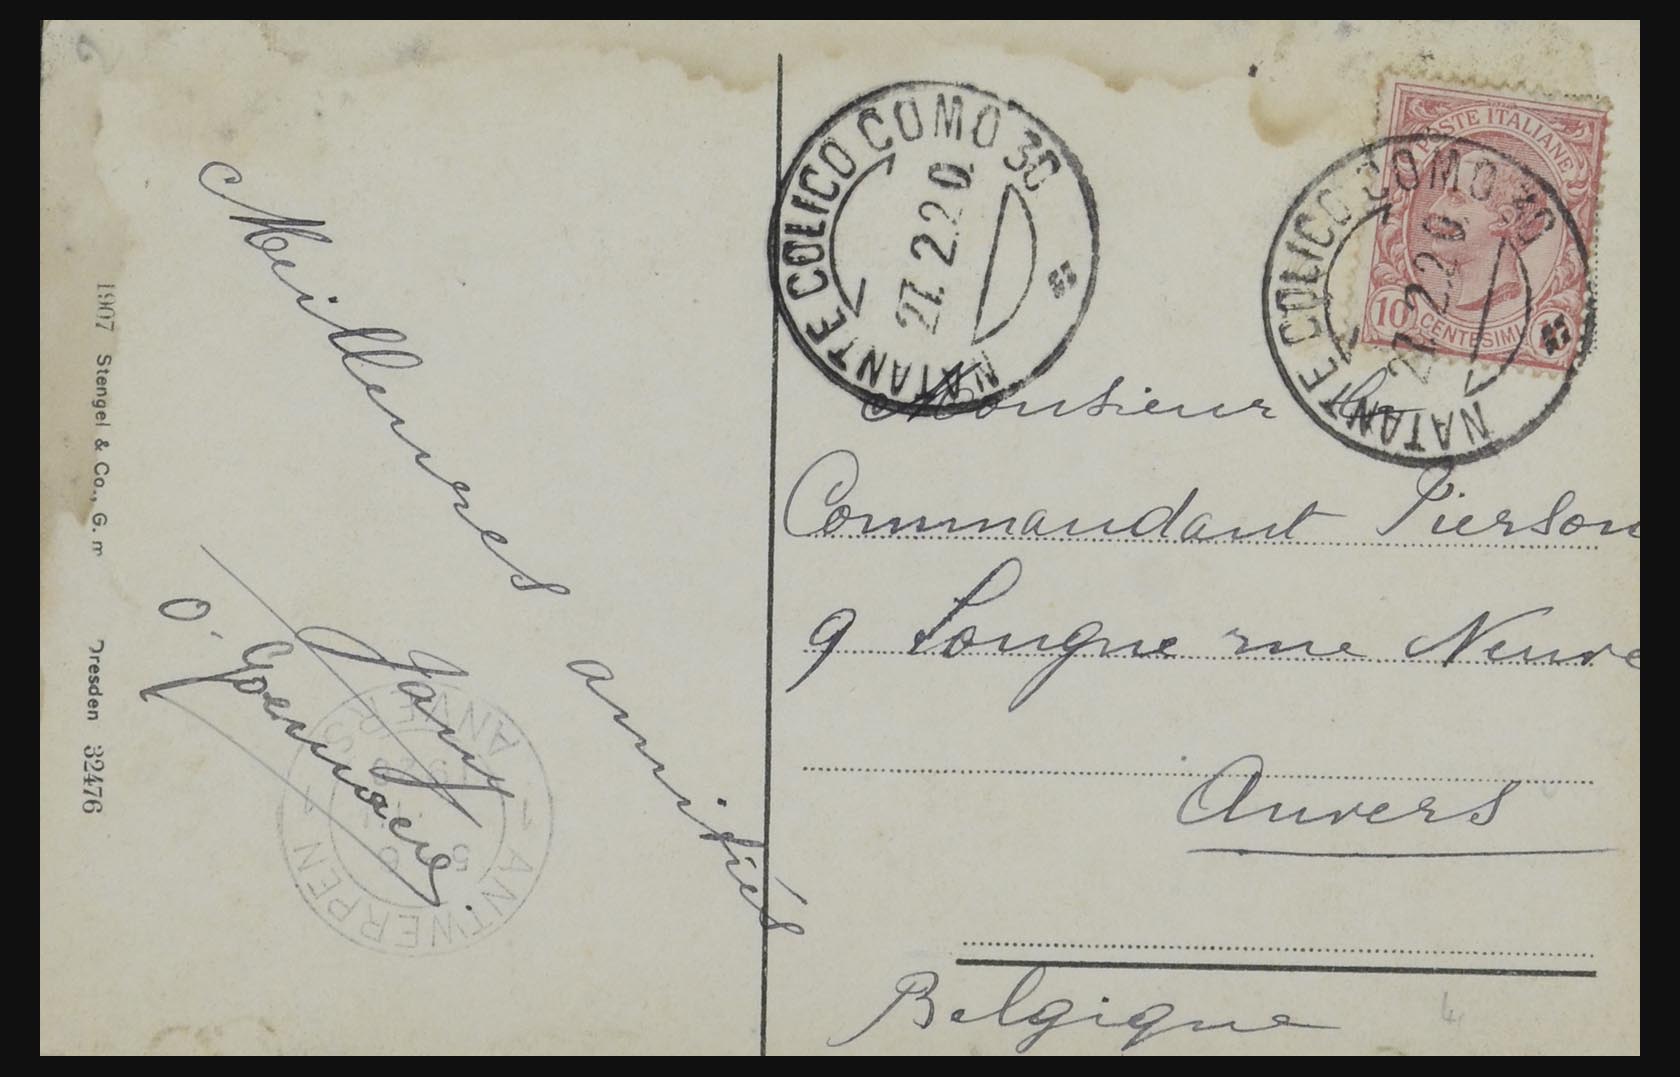 Meilleures amitiés
Jany
O. Goemaere
1907 Stengel & Co., G. m
Dresden 32476
ANVERS
ANTWERPEN
NATANTE COLICO COMO 30
27.2.20
POSTE ITALIANE
10 CENTESIMI 10
NATANTE COLICO COMO 30
27.2.20
Monsieur le
Commandant Pierson
9 Longue rue Neuve
Anvers
Belgique
4